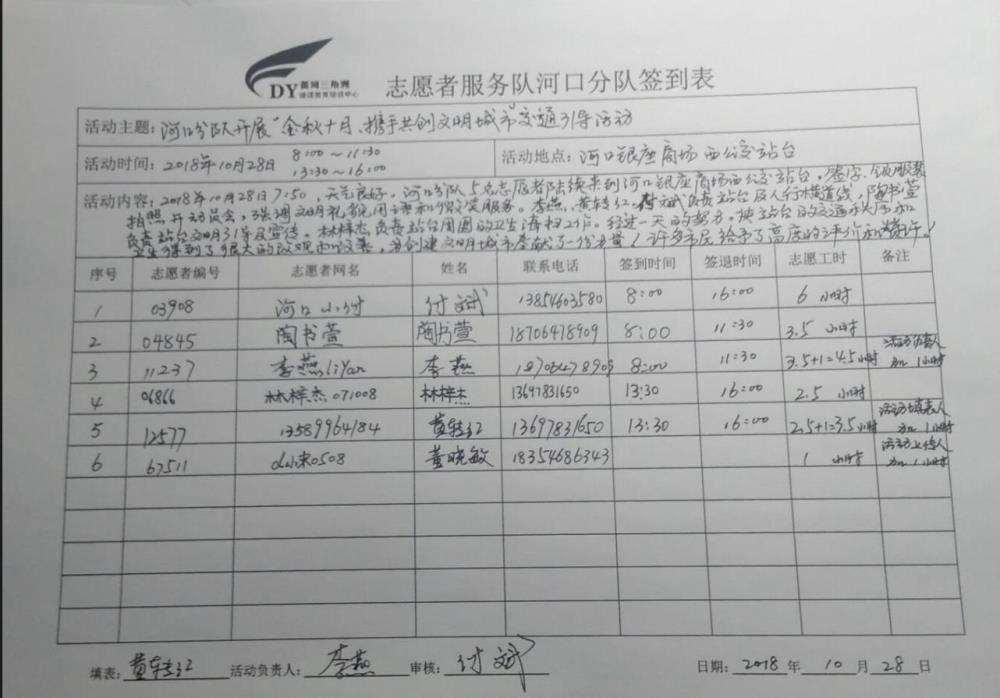 DY 黄河三角洲
志愿者服务队河口分队签到表
活动主题：河口分队开展"金秋十月、携手共创文明城市"交通引导活动
活动时间：2018年10月28日 8:00～11:30
13:30～16:00
活动地点：河口银座商场西公交站台
活动内容：2018年10月28日7:50，天气良好，河口分队5名志愿者陆续来到河口银座商场西公交站台，签字、领服装
拍照开动员会，强调文明礼貌用语和微笑服务。李燕、黄转红、付斌负责站台及人行横道线，陶书萱
负责站台文明引导及宣传。林梓杰负责站台周围的卫生清扫工作。经过一天的努力，使站台的交通秩序和
卫生得到了很大的改观和效果，为创建文明城市奉献了一份力量！许多市民给予了高度的评价和赞许。！
序号 志愿者编号 志愿者网名 姓名 联系电话 签到时间 签退时间 志愿工时 备注
1 03908 河口小付 付斌 13854603580 8:00 16:00 6小时
2 04845 陶书萱 陶书萱 18706478909 8:00 11:30 3.5小时
3 11237 李燕liYan 李燕 18706478909 8:00 11:30 3.5+1=4.5小时 活动负责人加1小时
4 06866 林梓杰071008 林梓杰 13697831650 13:30 16:00 2.5小时
5 12577 13589964184 黄转红 13697831650 13:30 16:00 2.5+1=3.5小时 活动填表人加1小时
6 67511 0508 董晓敏 18354686343 1小时 活动上传人加1小时
填表：黄转红 活动负责人：李燕 审核：付斌 日期：2018年10月28日